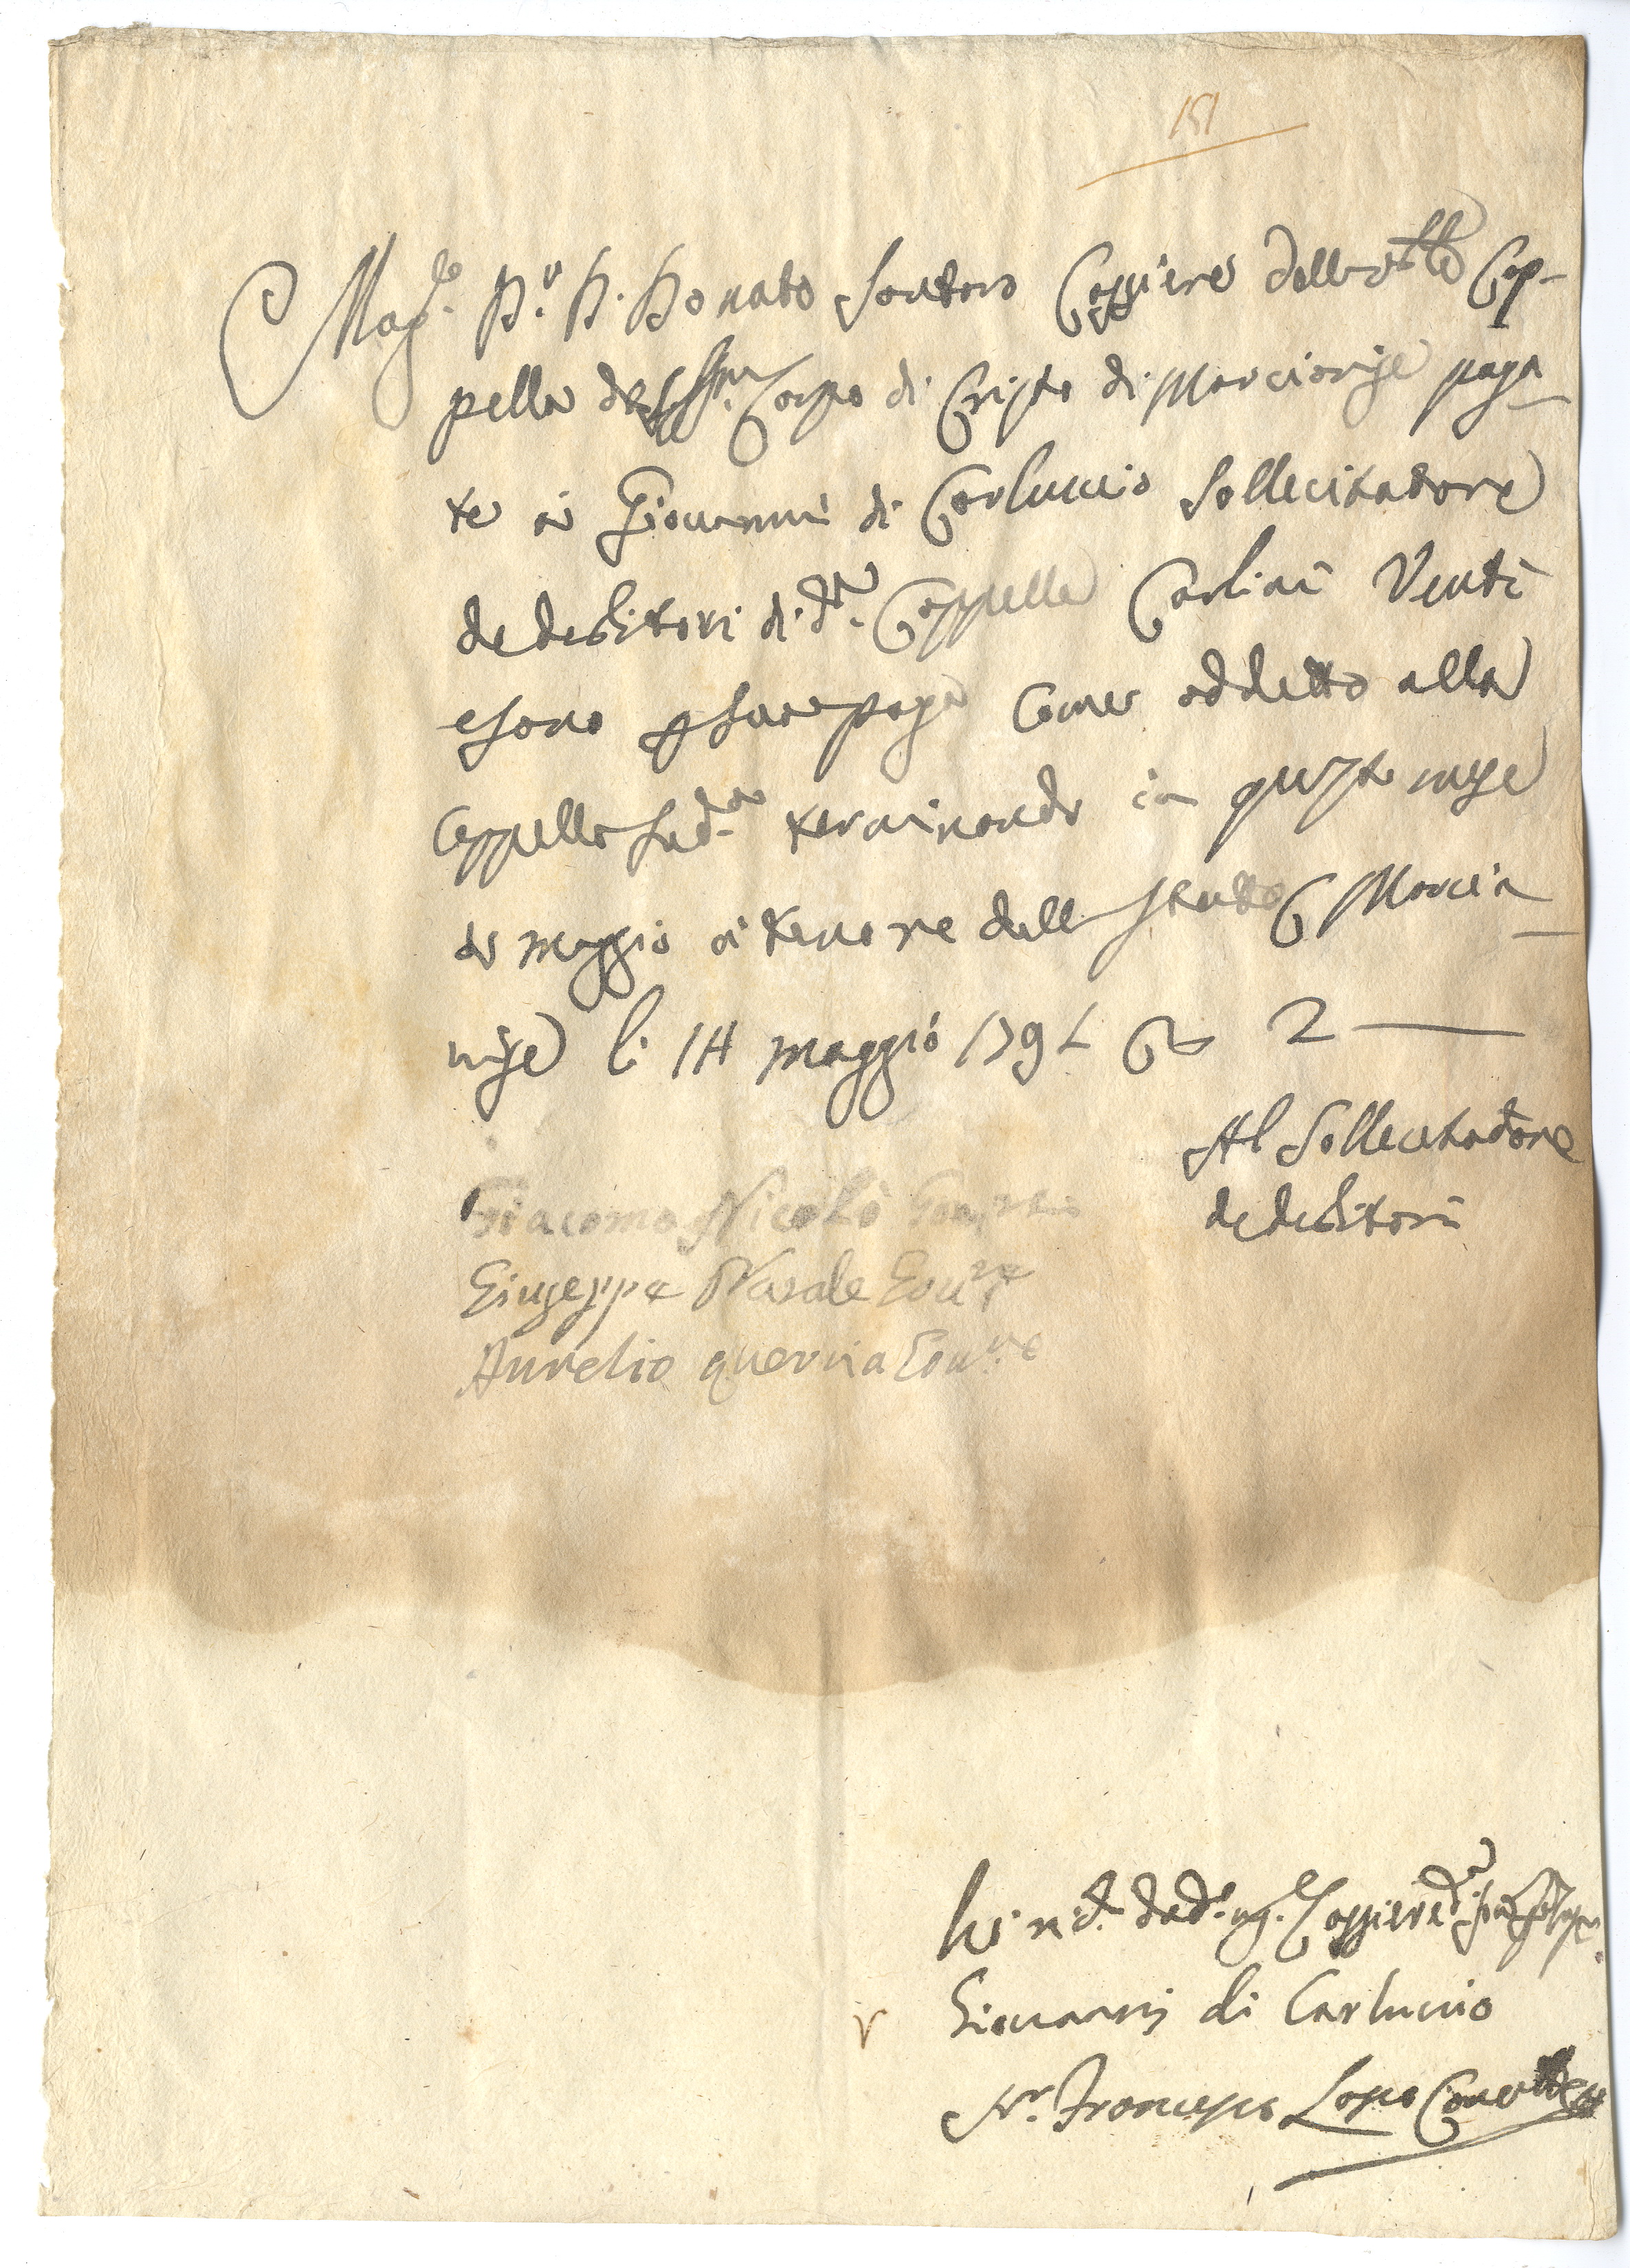 151
Mag.co D.r D. Donato Santoro Cassiere della
pella del SS.mo Corpo di Cristo di Marcianise paga
te a Giovanni di Carluccio Sollecitadore
de debitori di d.a Cappella Carlini Venti
e sono p sua paga come addetto alla
Cappella sud.a terminando in questo mese
di maggio a tenore dello stato Marcia
nise li 14 maggio 179 2
Al Sollecitadore
de debitori
Giacomo Nicolò
Giuseppe Natale Gov.re
Aurelio quercia Gov.re
Cassiere
Giovanni di Carluccio
N.r Francesco